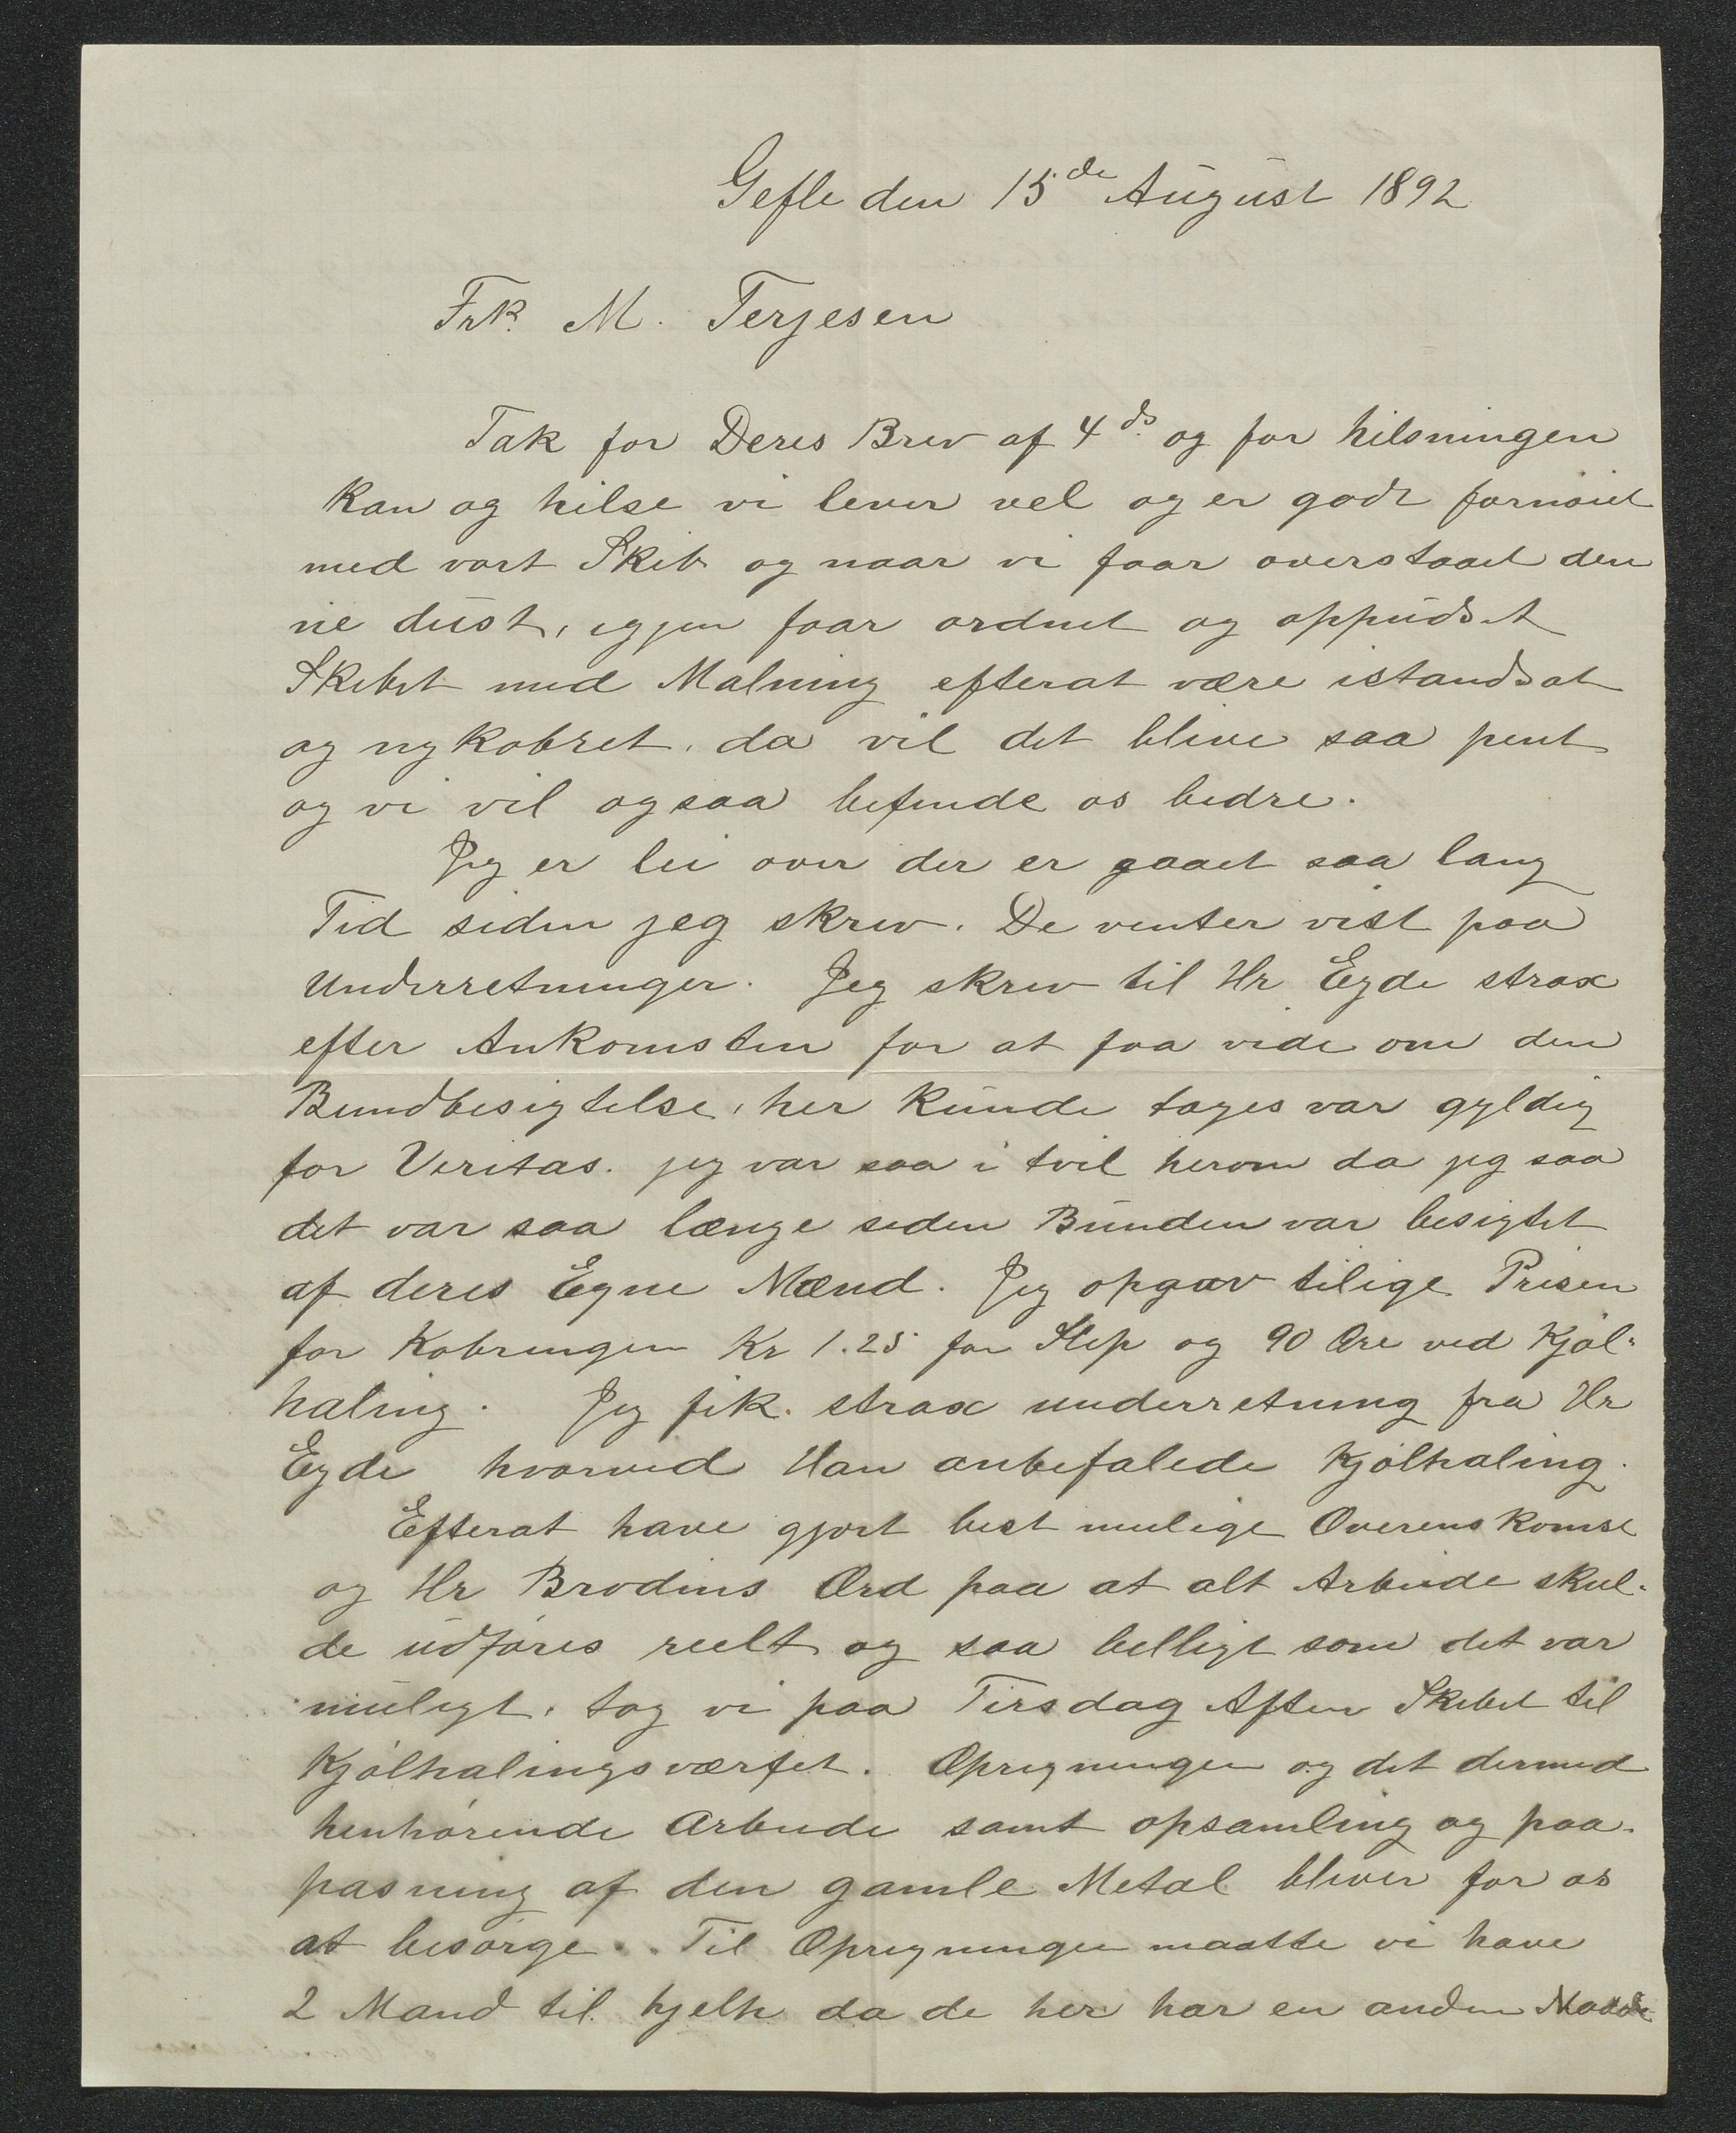 Gefle den 15de August 1892
Frk. M. Terjesen
Tak for Deres Brev af 4 ds. og for hilsningen
kan og hilse vi lever vel og er godt fornöiet
med vort Skib og naar vi faar overstaaet den
ne dúst, igjen faar ordnet og oppúdset
Skibet med Malning efterat være istandsat
og nykobret, da vil det blive saa pent
og vi vil ogsaa befinde os bedre.
Jeg er lei over der er gaaet saa lang
Tid siden jeg skrev. De venter vist paa
Underretninger. Jeg skrev til Hr Eyde strax
efter Ankomsten for at faa vide om den
Bundbesigtelse, her kúnde tages var gyldig
for Veritas. jeg var saa i tvil herom da jeg saa
det var saa længe siden Búnden var besigtet
af deres Egne Mænd. Jeg opgav tilige Prisen
for Kobringen Kr 1.25 for Slip og 90 Øre ved Kjöl-
haling. Jeg fik strax underretning fra Hr
Eyde hvorved Han anbefalede Kjölhaling.
Efterat have gjort best mulige Overenskomst
og Hr Brodins Ord paa at alt Arbeide skul-
de údföres reelt og saa billigt som det var
múligt, tog vi paa Tirsdag Aften Skibet til
Kjölhalingsværftet. Oprigningen og det dermed
henhörende Arbeide samt opsamling og paa-
pasning af den gamle Metal bliver for os
at besörge. Til Oprigningen maatte vi have
2 Mand til hjelp da de her har en anden Maade